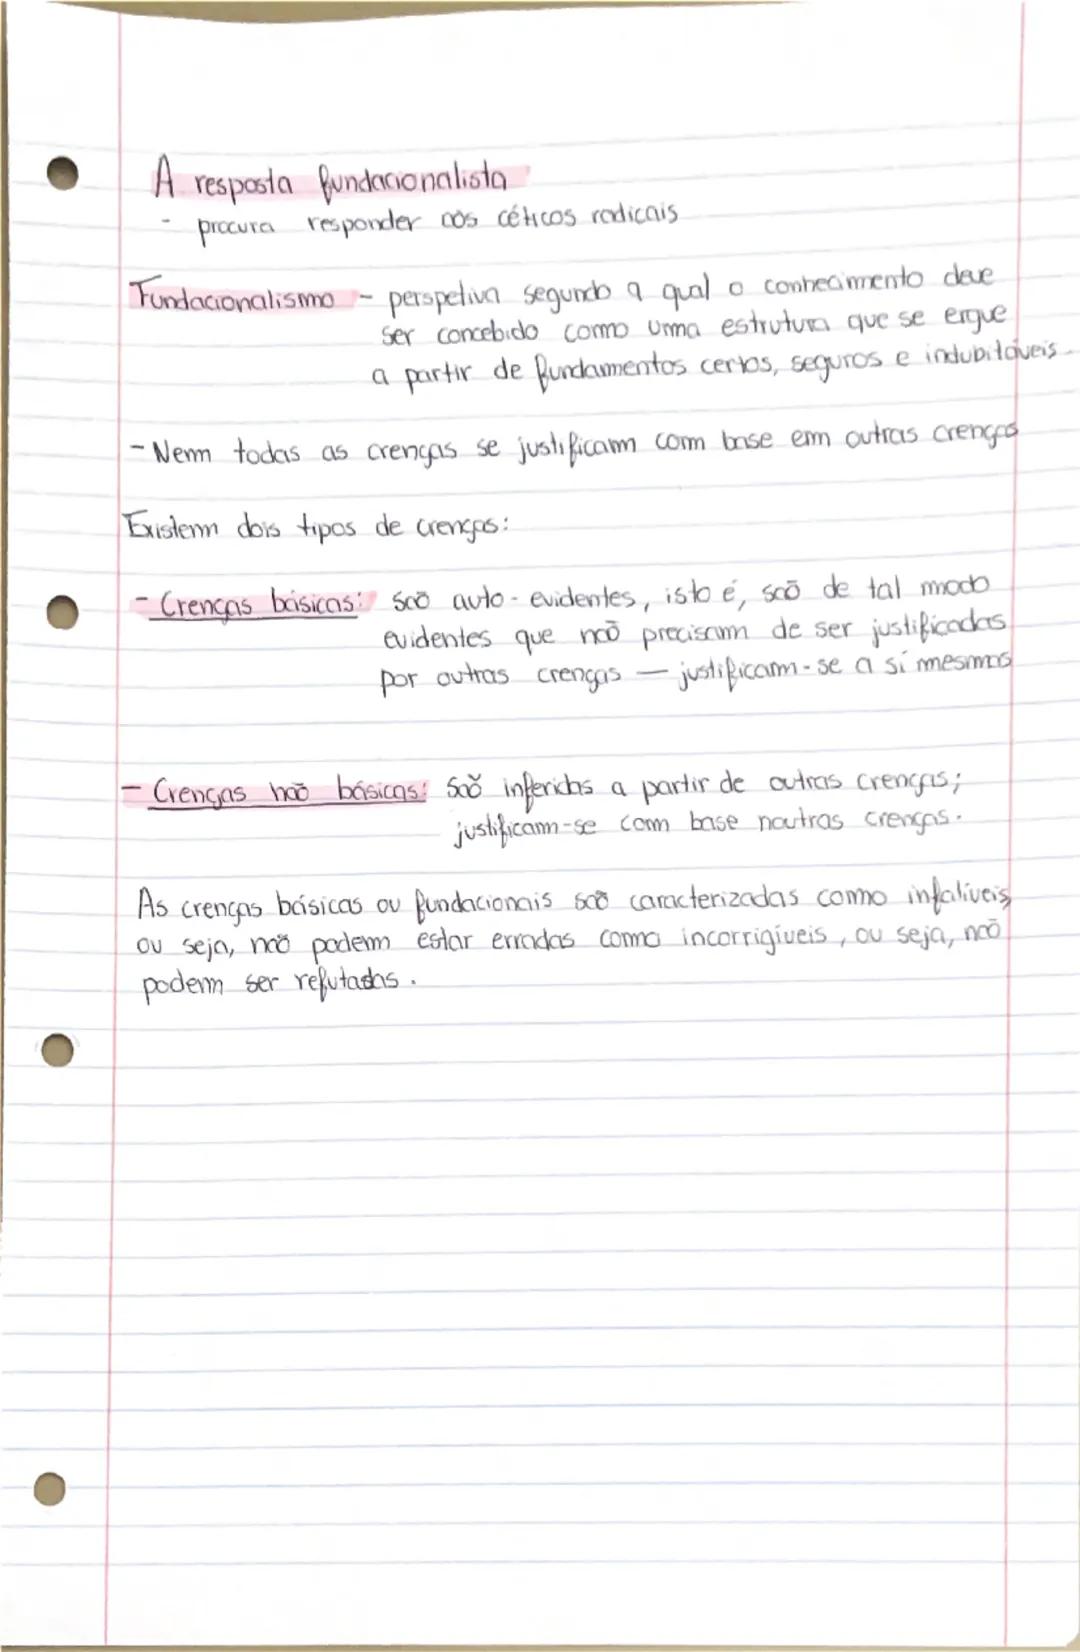 A resposta fundacionalista
- procura responder aos céticos radicais
Fundacionalismo - perspetiva segundo a qual o conhecimento deve
ser concebido como uma estrutura que se ergue
a partir de fundamentos certos, seguros e indubitáveis.
- Nem todas as crenças se justificam com base em outras crenças
Existem dois tipos de crenças:
- Crenças básicas: são auto-evidentes, isto é, são de tal modo
evidentes que não precisam de ser justificadas
por outras crenças — justificam-se a si mesmas
- Crenças não básicas: São inferidas a partir de outras crenças;
justificam-se com base noutras crenças.
As crenças básicas ou fundacionais são caracterizadas como infalíveis,
ou seja, não podem estar erradas como incorrigíveis, ou seja, não
podem ser refutadas.